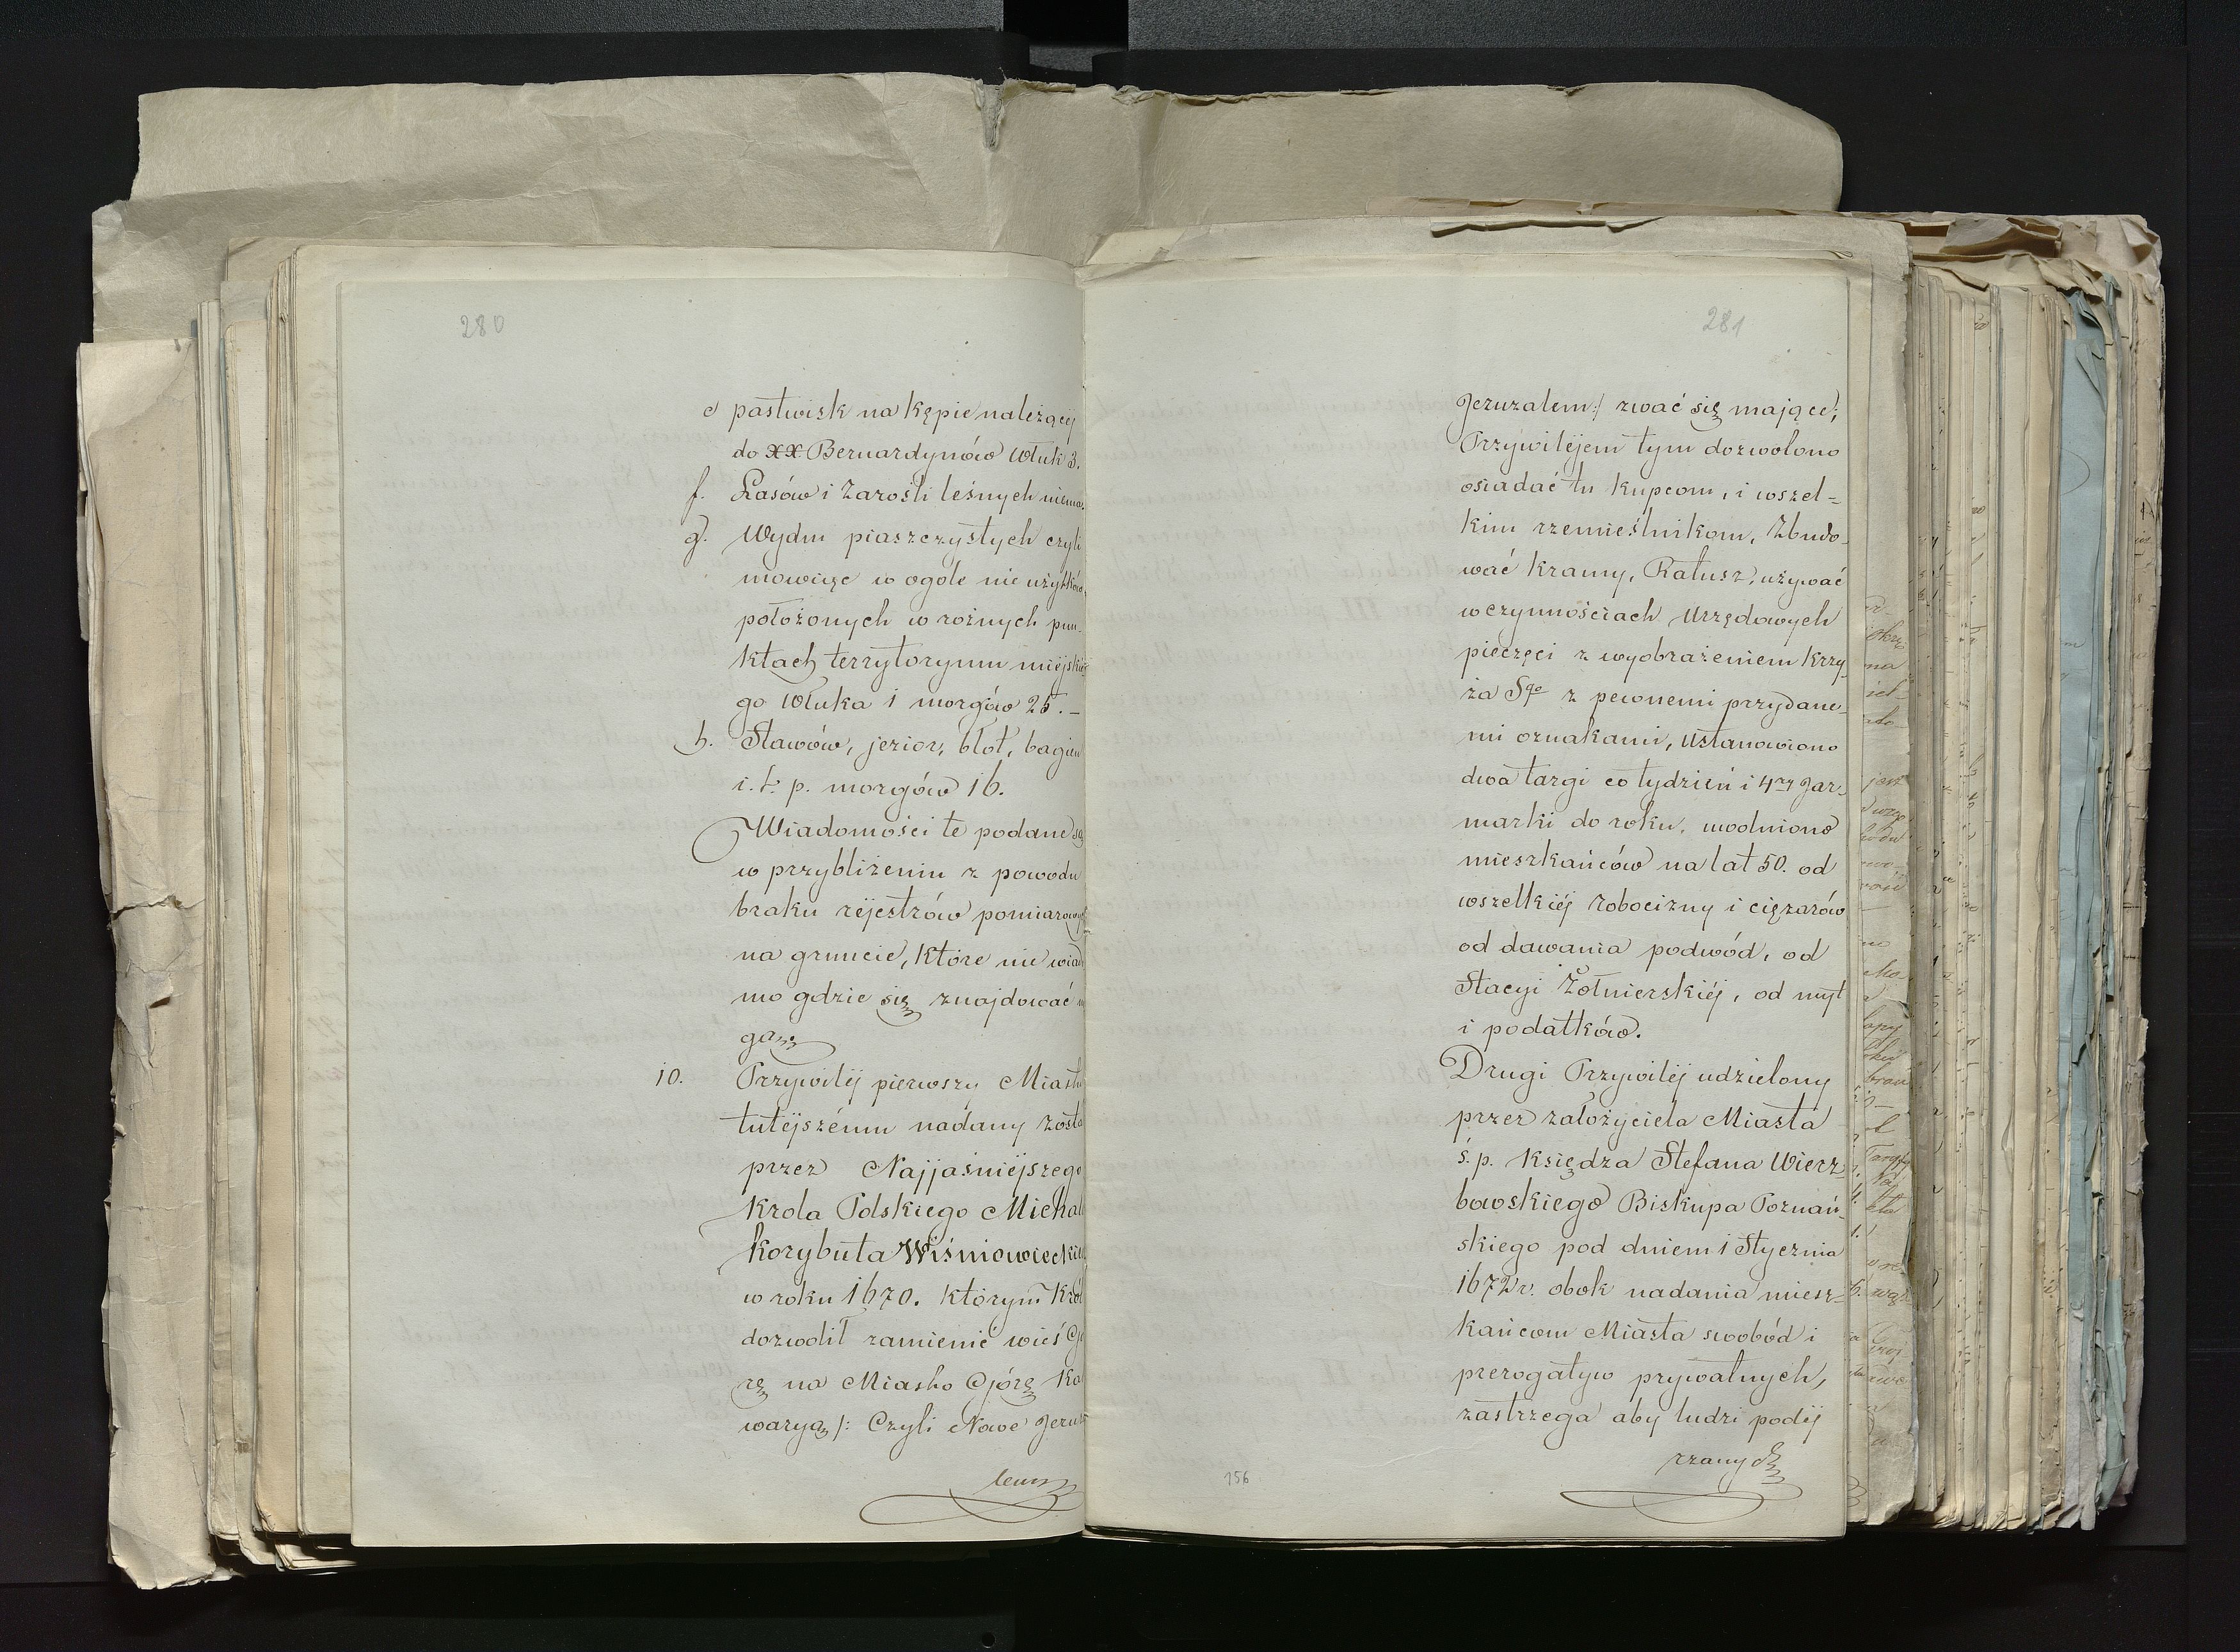 280
e pastwisk na Kępie należącéj
do XX. Bernardynów Włuk 3.
f. Lasów i Zarośli leśnych niema.
g. Wydm piaszczystych czyli
mowiąc w ogóle nie użytków
położonych w rożnych pun-
ktach terrytoryum miéjskie
go Włuka 1 morgów 25. –
h. Stawów, jezior, błot, bagien
i. t. p. morgów 16.
Wiadomości te podane są
w przybliżeniu z powodu
braku réjestrów pomiarowych
na gruncie, które nie wiad
mo gdzie się znajdować m
gą.
10. Przywiléj pierwszy Miastu
tutéjszému nadany zosta
przez Najjaśniéjszego
Krola Polskiego Michał
Korybuta Wiśniowieckieg
w roku 1670. którym Król
dozwolił zamienić wieś Gó
rę na Miasto Górę Kal
waryą /: Czyli Nowe Jeruz
lem
281
Jeruzalem :/ zwać się mające;
Przywiléjem tym dozwolono
osiadać tu Kupcom, i wszel-
kim rzemieślnikom, Zbudo-
wać Kramy, Ratusz, używać
w czynnościach Urzędowych
pieczęci z wyobrażeniem Krzy-
ża Sgo z pewnemi przydane-
mi oznakami, Ustanowiono
dwa targi co tydzień i 4ry Jar-
marki do roku, uwolniono
mieszkańców na lat 50. od
wszelkiéj robocizny i ciężarów
od dawania podwód, od
Stacyi Żołnierskiéj, od myt
i podatków.
Drugi Przywiléj udzielony
przez założyciela Miasta
ś. p. Księdza Stefana Wierz-
bowskiego Biskupa Poznań-
skiego pod dniem 1 Stycznia
1672 r. obok nadania miesz-
kańcom Miasta swobód i
prerogatyw prywatnych,
zastrzega aby ludzi podéj
rzanych
156